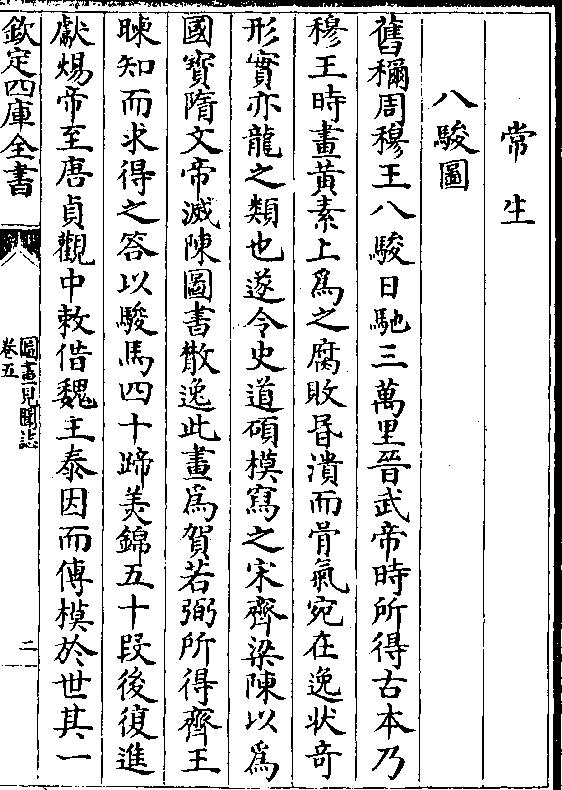 常生
八駿圖
舊稱周穆王八駿日馳三萬里晉武帝時所得古本乃
穆王時畫黃素上爲之腐敗昏潰而骨氣宛在逸狀奇
形實亦龍之類也遂令史道碩模寫之宋齊梁陳以爲
國寶隋文帝滅陳圖書散逸此畫爲賀若弼所得齊王
暕知而求得之答以駿馬四十蹄美錦五十段後復進
獻煬帝至唐貞觀中敕借魏王泰因而傳模於世其一
欽定四庫全書
圖畫見聞誌
卷五
二